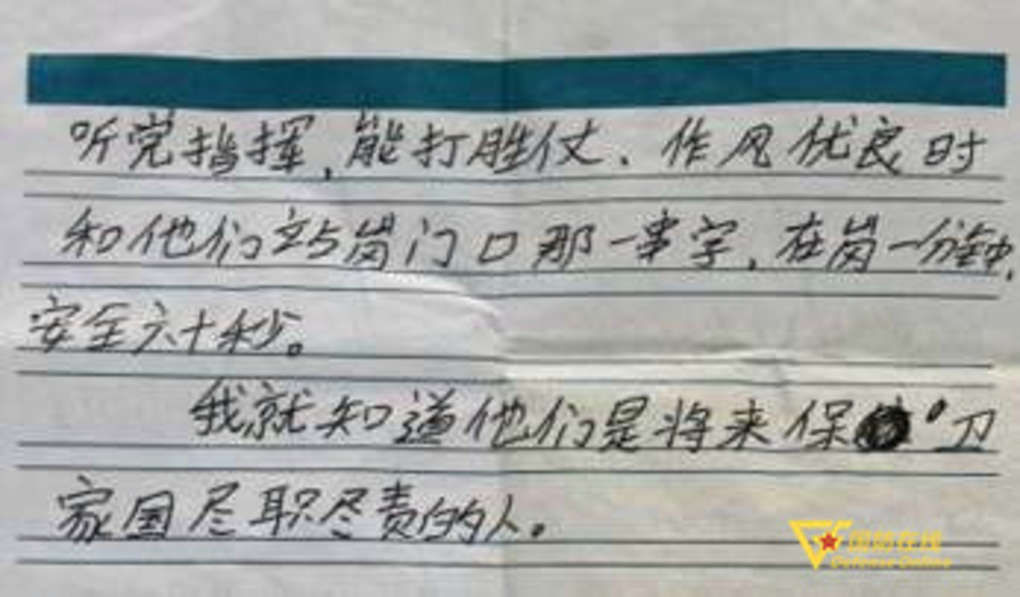 听党指挥,能打胜仗、作风优良时
和他们站岗门口那一串字,在岗一分钟,
安全六十秒。
我就知道他们是将来保卫
家国尽职尽责的人。
国防在线
Defense Online